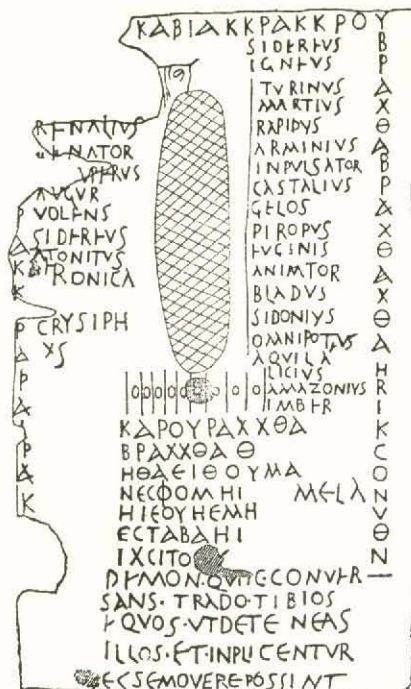 ΚΑΒΙΑΚΚΡΑΚΚΡΟΥ
SIDEREVS
IGNEVS
TVRINVS
MARTIVS
RAPIDVS
ARMINIVS
INPVLSATOR
CASTALIVS
GELOS
PIROPVS
EVGINIS
ANIMTOR
BLADVS
SIDONIVS
OMNIPOTAVS
AQVILA
LICIVS
AMAZONIVS
IMBER
RENALIVS
ENATOR
VPERVS
AVGVR
VOLENS
SIDEREVS
ATONITVS
RONICA
CRYSIPH
XS
ΚΑΡΟΥΡΑΧΧΘΑ
ΒΡΑΧΧΘΑ Θ
ΗΘΑΕΙΘΟΥΜΑ
ΝΕϹΦΟΜΗΙ
ΗΙΕΟΥΗΕΜΗ MELA
ΕϹΤΑΒΑΗΙ
IXCITO
DEMON·QVIICCONVER
SANS·TRADO·TIBIOS
EQVOS·VTDETENEAS
ILLOS·ET·INPLICENTVR
ECSEMOVEREPOSSINT